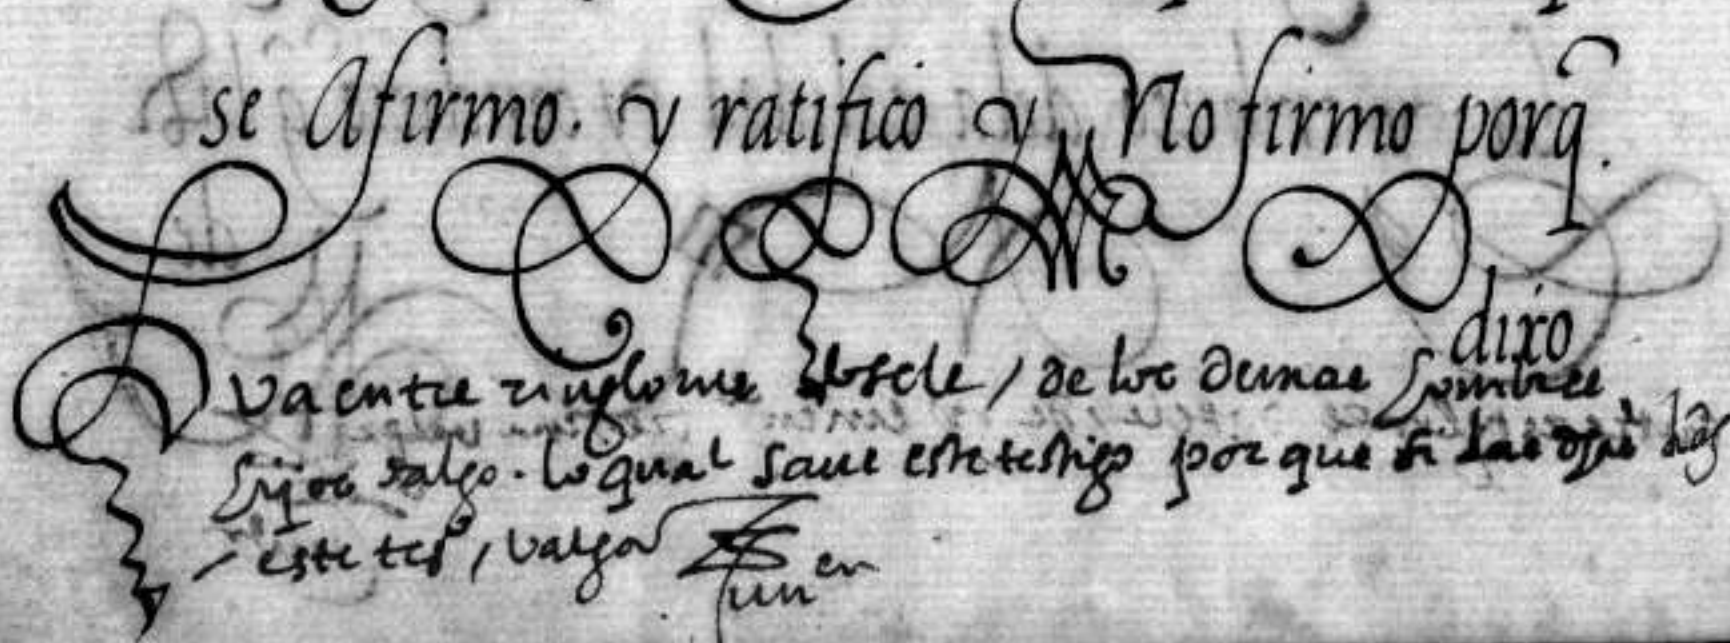 se Afirmo. y ratifico y No firmo porq̃.
dixo
Va entre ringlones / de los demas hombres
hijos dalgo. lo qual saue este testigo por que
este tesº, valga